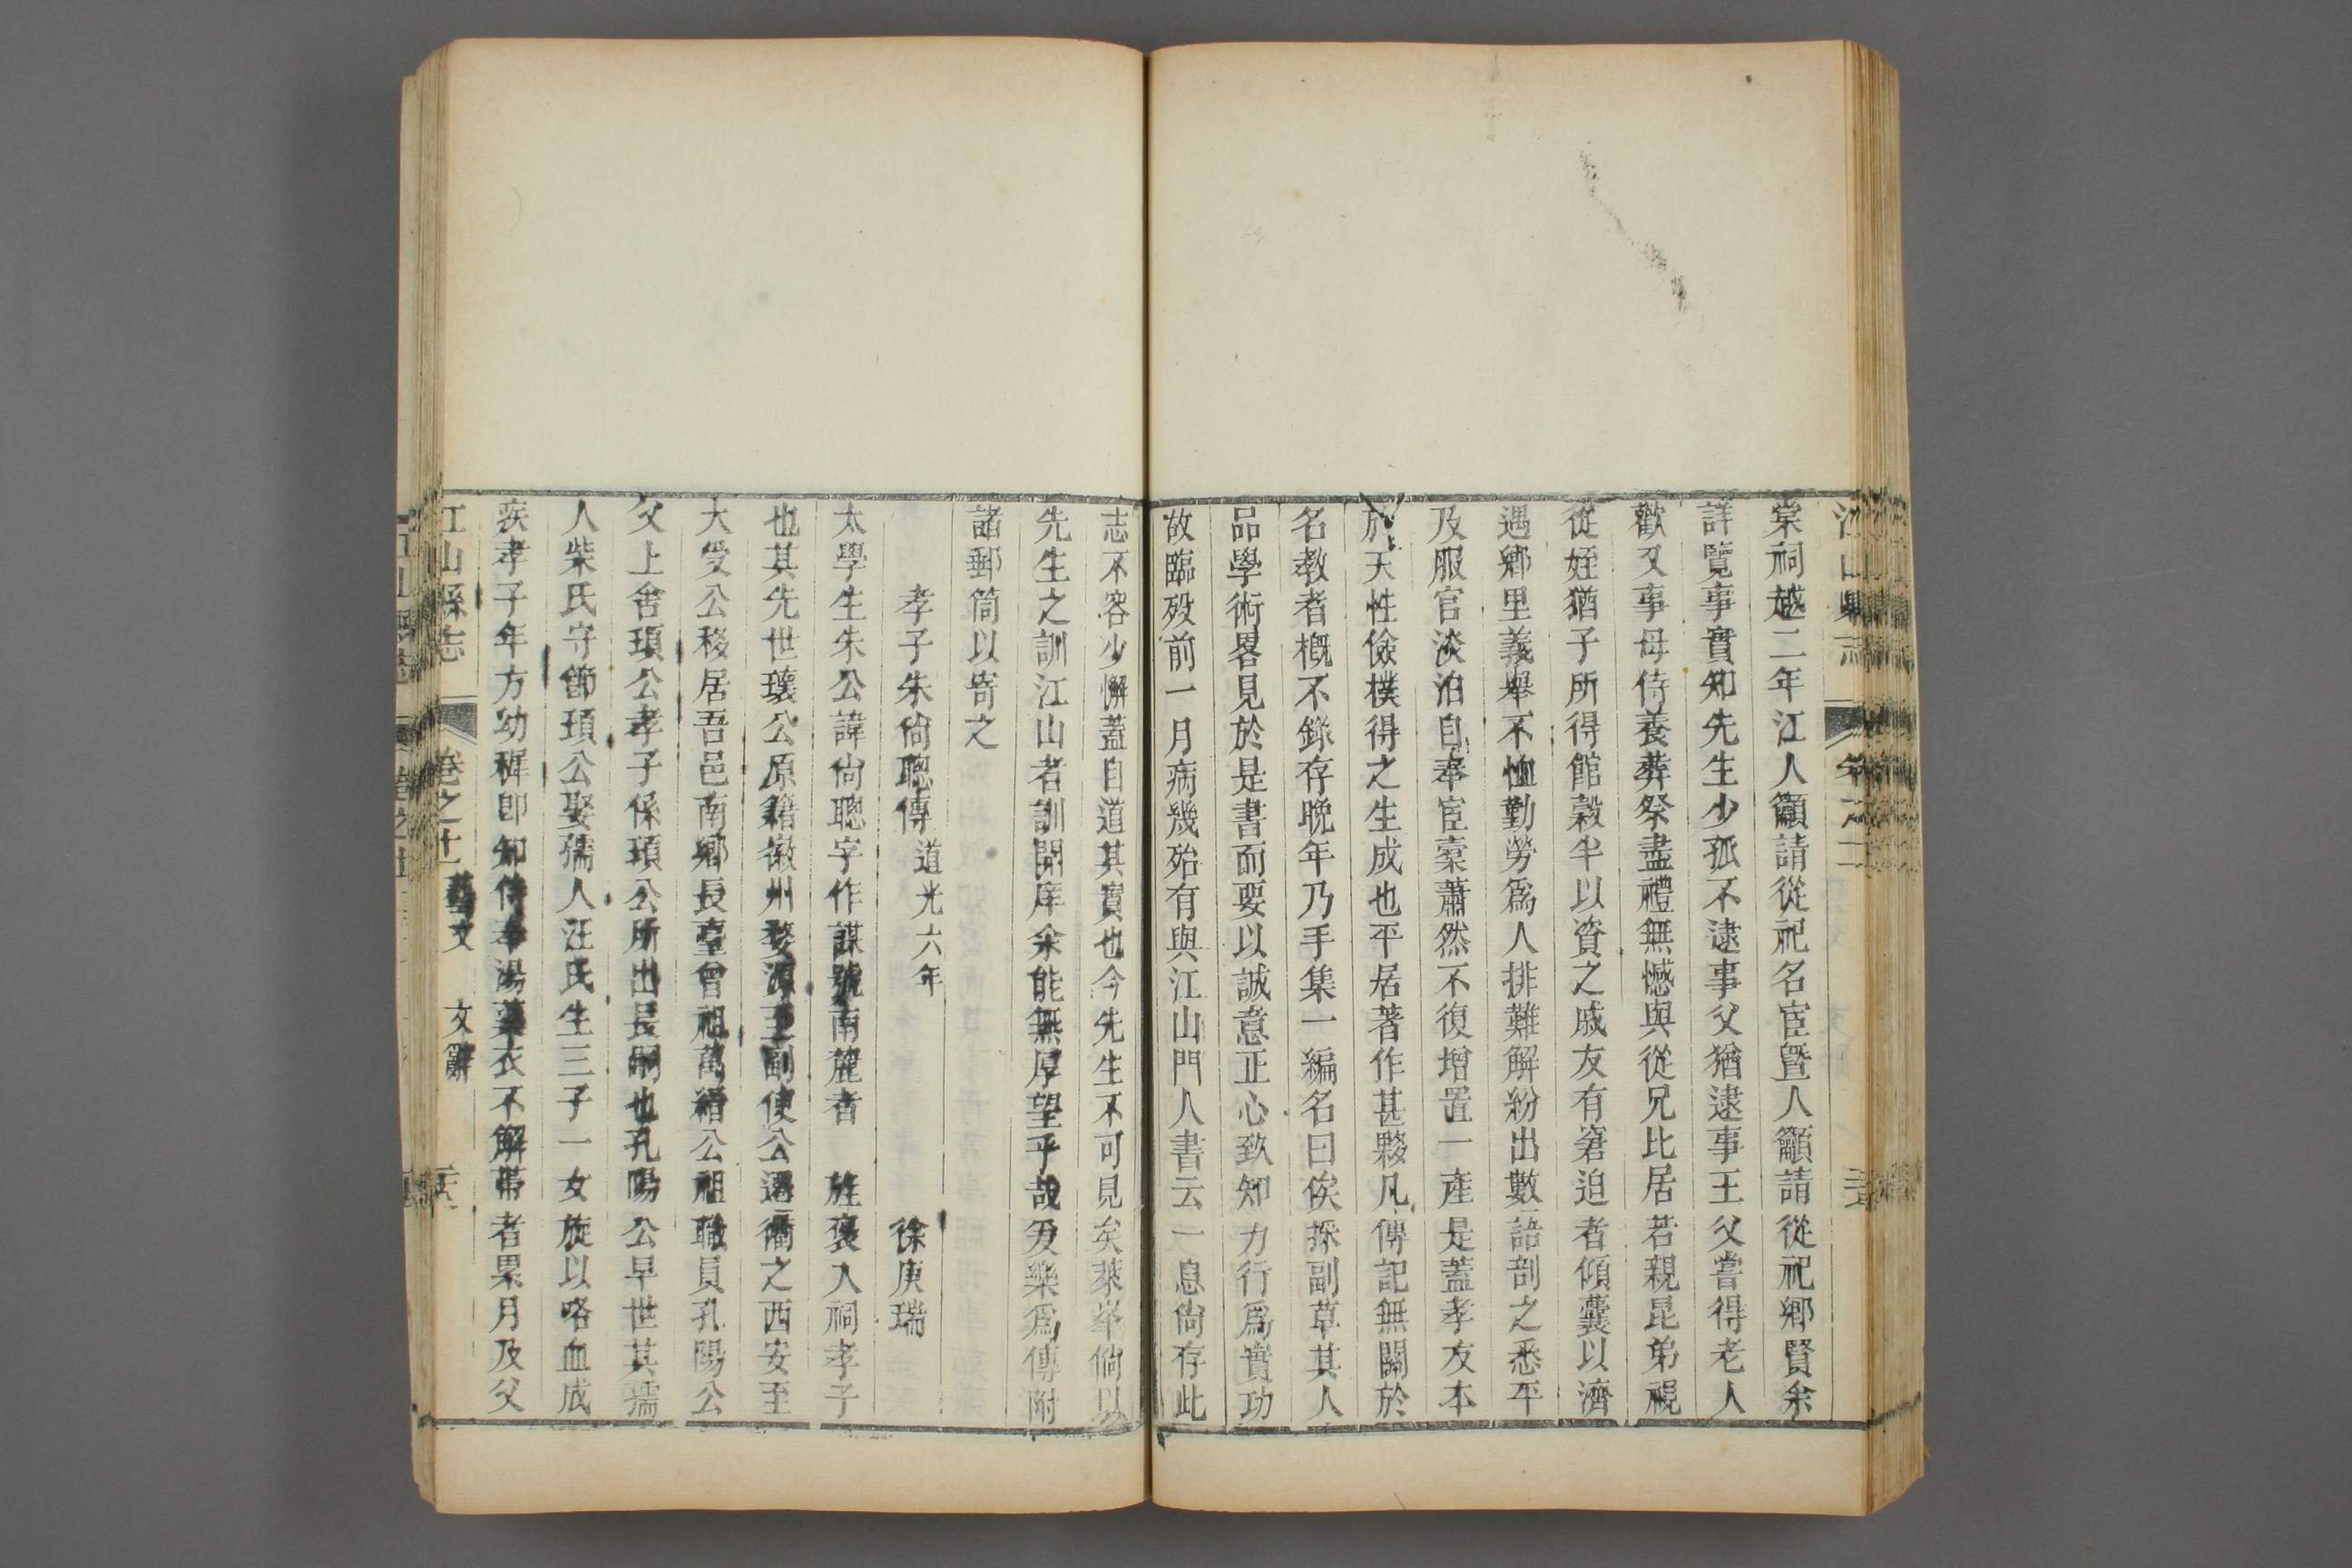 棠祠越二年江人籲請從祀名宦暨人籲請從祀鄉賢余
詳覽事實知先生少孤不逮事父猶逮事王父嘗得老人
歡又事母侍養葬祭盡禮無憾與從兄比居若親昆弟視
從姪猶子所得館穀半以資之戚友有窘迫者傾囊以濟
遇鄉里義舉不恤勤勞爲人排難解紛出數語剖之悉平
及服官淡泊自奉宦橐蕭然不復增置一產是蓋孝友本
於天性儉樸得之生成也平居著作甚夥凡傳記無關於
名教者槪不錄存晚年乃手集一編名曰俟採副草其人
品學術畧見於是書而要以誠意正心致知力行爲實功
故臨歿前一月病幾殆有與江山門人書云一息尙存此
志不容少懈蓋自道其實也今先生不可見矣萊峯倘以
先生之訓江山者訓開庠余能無厚望乎哉爰樂爲傳附
諸郵筒以寄之
孝子朱尙聰傳 道光六年 徐庚瑞
太學生朱公諱尙聰字作謀號南麓者 旌褒入祠孝子
也其先世瓖公原籍徽州婺源至副使公遷衢之西安至
大受公移居吾邑南鄉長臺曾祖萬縉公祖職員孔陽公
父上舍頊公孝子係頊公所出長嗣也孔陽公早世其孺
人柴氏守節頊公娶孺人汪氏生三子一女旋以咯血成
疾孝子年方幼穉卽知侍奉湯藥衣不解帶者累月及父
江山縣志 卷之十一藝文 文辭